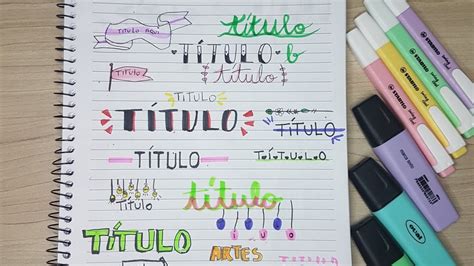 TÍTULO AQUI
título
TÍTULO
título
TÍTULO
TÍTULO
TÍTULO
TÍTULO
TÍTULO
TÍTULO
título
TÍTULO
TÍTULO
ARTES
STABILO
STABILO
STABILO